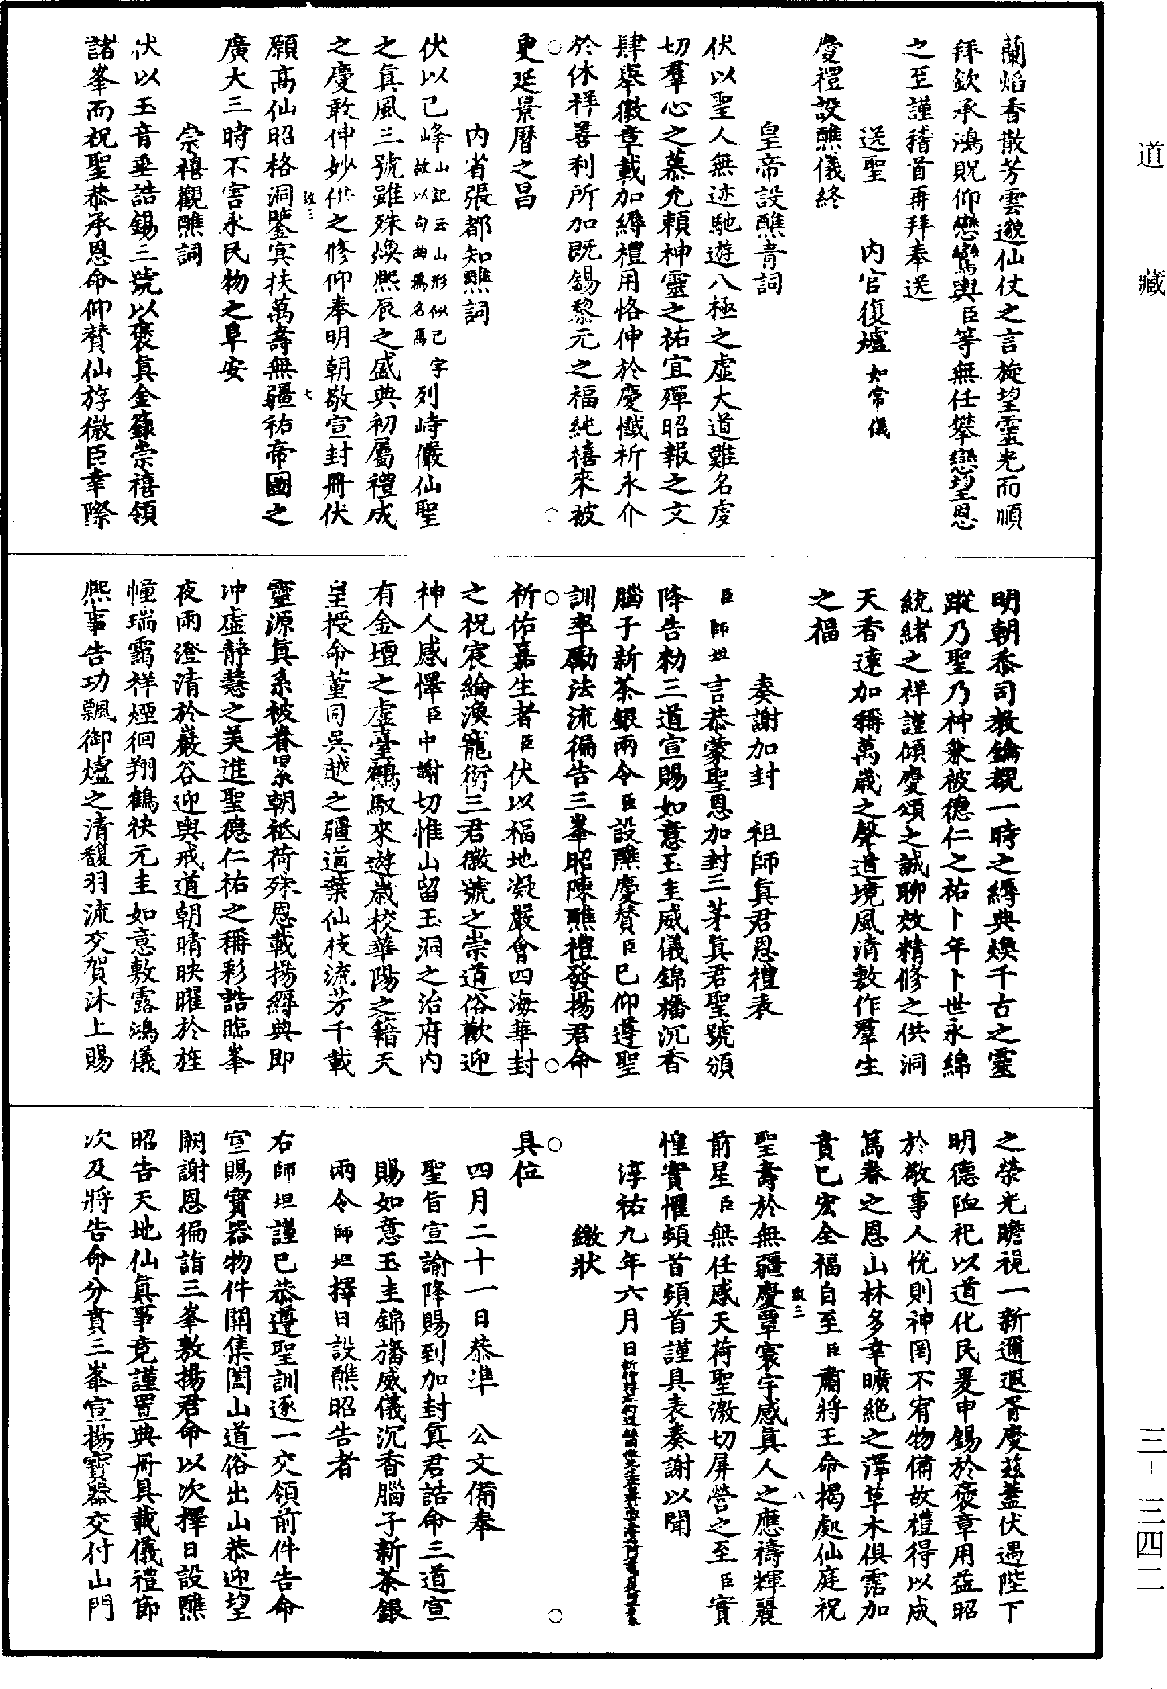 道藏
三-三四二
蘭焰香散芳雲邈仙仗之言旋望靈光而順
拜欽承鴻貺仰戀鸞輿臣等無任攀戀望恩
之至謹稽首再拜奉送
送聖 內官復爐如常儀
慶禮設醮儀終
皇帝設醮青詞
伏以聖人無迹馳遊八極之虛大道難名虔
切羣心之慕允賴神靈之祐宜殫昭報之文
肆舉徽章載加縟禮用恪伸於慶懺祈永介
於休祥善利所加既錫黎元之福純禧來被
更延景曆之昌
內省張都知醮詞
伏以已峰山記云山形似己字故以句曲為名焉列峙儼仙聖
之真風三號雖殊煥熙辰之盛典初屬禮成
之慶敢伸妙供之修仰奉明朝敬宣封冊伏
願高仙昭格洞鑒寅扶萬壽無疆祐帝國之
廣大三時不害永民物之阜安
崇禧觀醮詞
伏以玉音垂誥錫三號以褒真金籙崇禧領
諸峯而祝聖恭承恩命仰贊仙斿微臣幸際
明朝忝司教鑰覩一時之縟典煥千古之靈
蹤乃聖乃神兼被德仁之祐卜年卜世永綿
統緒之祥謹傾慶頌之誠聊效精修之供洞
天香遠加稱萬歲之聲道境風清敷作羣生
之福
奏謝加封 祖師真君恩禮表
臣師坦言恭蒙聖恩加封三茅真君聖號頒
降告勑三道宣賜如意玉圭威儀錦旛沉香
腦子新茶銀兩令臣設醮慶贊臣已仰遵聖
訓率勵法流徧告三峯昭陳醮禮發揚君命
祈佑嘉生者臣伏以福地凝嚴會四海華封
之祝宸綸渙寵衍三君徽號之崇道俗歡迎
神人感懌臣中謝切惟山留玉洞之治府內
有金壇之虛臺鶴馭來遊歲校華陽之籍天
皇授命董同吳越之疆道葉仙枝流芳千載
靈源真系被眷累朝祗荷殊恩載揚縟典即
冲虛靜慧之美進聖德仁祐之稱彩誥臨峯
夜雨澄清於巖谷迎輿戒道朝晴映曜於旌
幢瑞靄祥煙徊翔鶴袂元圭如意敷露鴻儀
熙事告功飄御爐之清馥羽流交賀沐上賜
之榮光瞻視一新邇遐胥慶茲蓋伏遇陛下
明德卹祀以道化民爰申錫於褒章用益昭
於敬事人悅則神罔不宥物備故禮得以成
篤眷之恩山林多幸曠絕之澤草木俱霑加
賁已宏全福自至臣肅將王命揭處仙庭祝
聖壽於無疆慶覃寰宇感真人之應禱輝麗
前星臣無任感天荷聖激切屏營之至臣實
惶實懼頓首頓首謹具表奏謝以聞
淳祐九年六月日
繳狀
具位
四月二十一日恭準 公文備奉
聖旨宣諭降賜到加封真君誥命三道宣
賜如意玉圭錦旛威儀沉香腦子新茶銀
兩令師坦擇日設醮昭告者
右師坦謹已恭遵聖訓逐一交領前件告命
宣賜寶器物件關集闔山道俗出山恭迎望
闕謝恩徧詣三峯敷揚君命以次擇日設醮
昭告天地仙真事竟謹置典冊具載儀禮節
次及將告命分賁三峯宣揚寶器交付山門